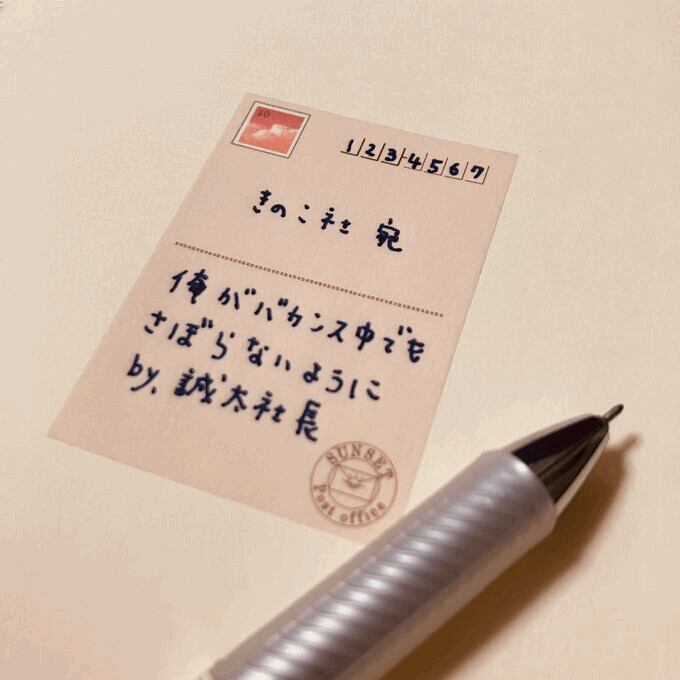 50
1234567
きのこ社 宛
俺がバカンス中でも
さぼらないように
by.誠太社長
SUNSET
Post office